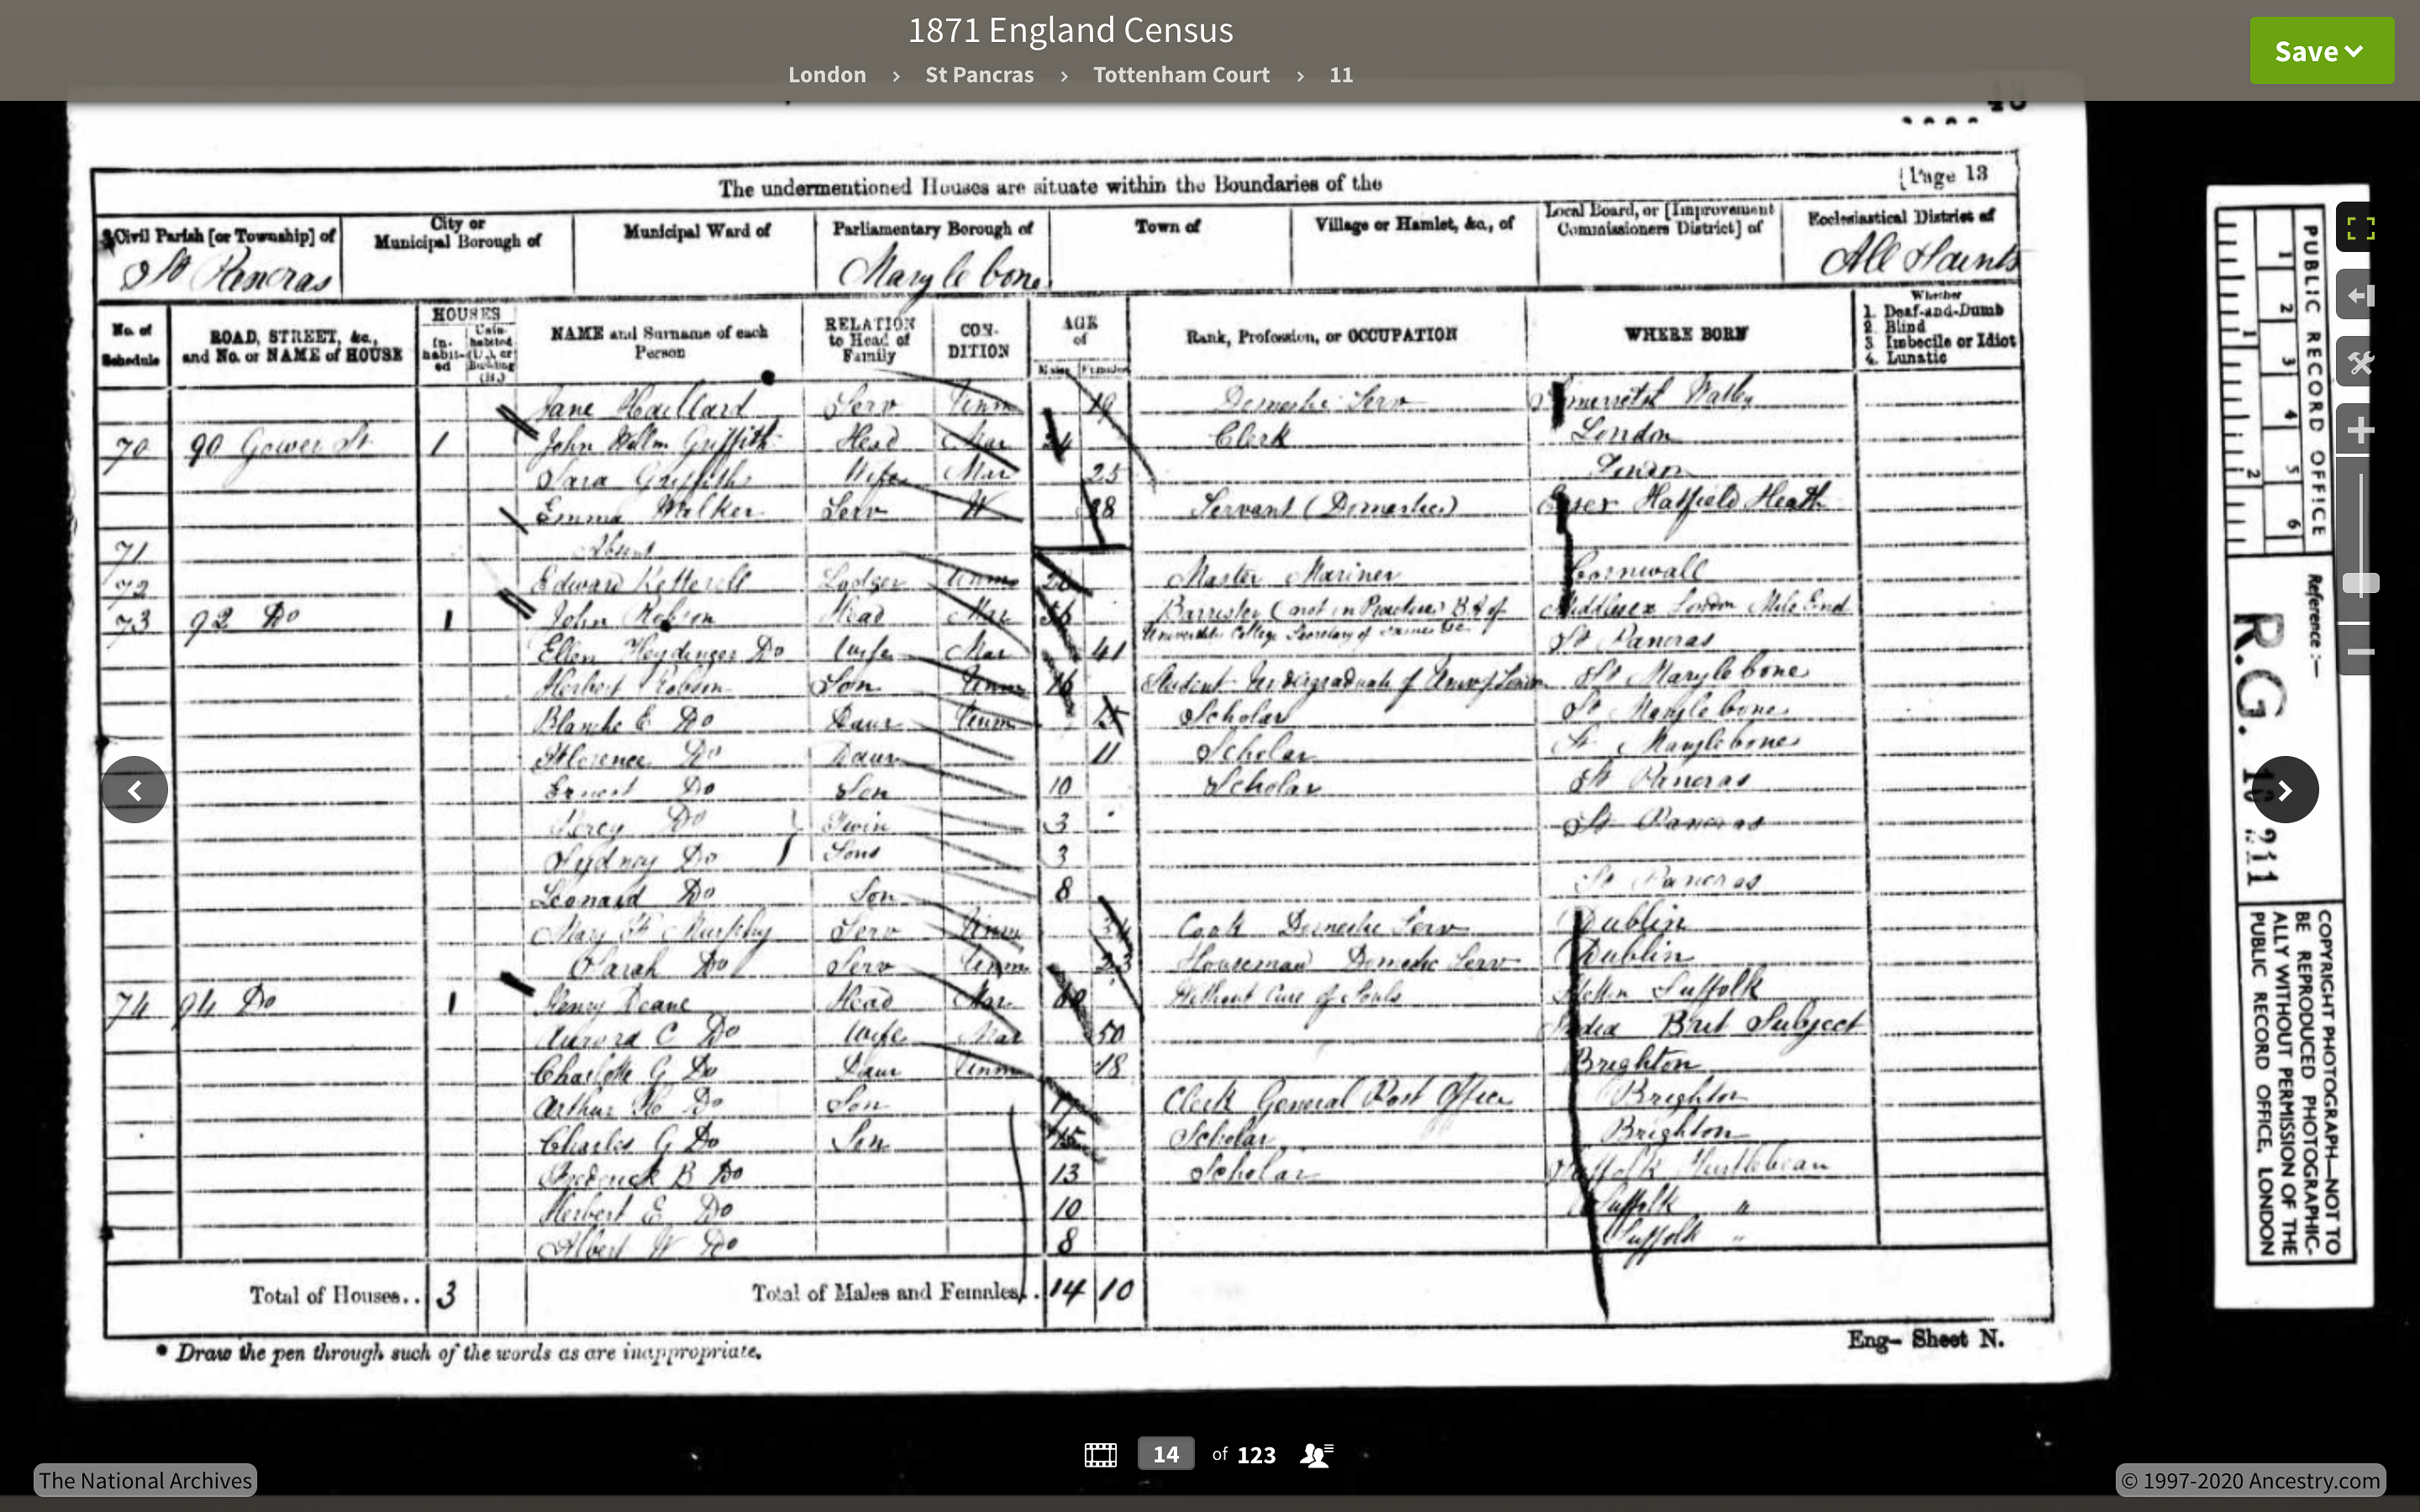 1871 England Census
London › St Pancras › Tottenham Court › 11
Save
[Page 13
The undermentioned Houses are situate within the Boundaries of the
Civil Parish [or Township] of
City or Municipal Borough of
Municipal Ward of
Parliamentary Borough of
Town of
Village or Hamlet, &c., of
Local Board, or [Improvement Commissioners District] of
Ecclesiastical District of
St Pancras Marylebone All Saints
No. of Schedule
ROAD, STREET, &c., and No. or NAME of HOUSE
HOUSES
In-habit-ed
Unin-habited (U.), or Building (B.)
NAME and Surname of each Person
RELATION to Head of Family
CON-DITION
AGE of
Males Females
Rank, Profession, or OCCUPATION
WHERE BORN
Whether
1. Deaf-and-Dumb
2. Blind
3. Imbecile or Idiot
4. Lunatic
Jane Serv Unm 19 Domestic Serv
70 90 Gower St 1 John Willm Griffith Head Mar 24 Clerk London
Sara Griffiths Wife Mar 25 London
Emma Walker Serv W Servant (Domestic) Essex Hatfield Heath
71 Absent
72 Edward Lodger Unm Master Mariner Cornwall
73 92 Do 1 John Robson Head Mar 56 Barrister (not in Practice) B.A of Middlesex London Mile End
University College Secretary of
Ellen Heydinger Do Wife Mar 41 St Pancras
Herbert Robson Son Unm 16 Student Undergraduate of Univ of London St Marylebone
Blanche E Do Daur Unm Scholar St Marylebone
Florence Do Daur 11 Scholar St Marylebone
Ernest Do Son 10 Scholar St Pancras
Percy Do } Twin 3 St Pancras
Sydney Do } Sons 3
Leonard Do Son 8 St Pancras
Mary Murphy Serv Unm Cook Domestic Serv Dublin
Sarah Do Serv Unm 23 Housemaid Domestic Serv Dublin
74 94 Do 1 Henry Deane Head Mar Without Cure of Souls Suffolk
Aurora C Do Wife Mar 50 India Brit Subject
Charlotte G Do Daur Unm 18 Brighton
Arthur H Do Son 17 Clerk General Post Office Brighton
Charles G Do Son 15 Scholar Brighton
Frederick B Do 13 Scholar Suffolk
Herbert E Do 10 Suffolk "
Albert W Do 8 Suffolk "
Total of Houses.. 3
Total of Males and Females.. 14 10
* Draw the pen through such of the words as are inappropriate.
Eng- Sheet N.
1 2 3 4 5 6
1 2
PUBLIC RECORD OFFICE
Reference :—
R.G. 10 911
COPYRIGHT PHOTOGRAPH—NOT TO BE REPRODUCED PHOTOGRAPHIC-ALLY WITHOUT PERMISSION OF THE PUBLIC RECORD OFFICE, LONDON
14 of 123
The National Archives
© 1997-2020 Ancestry.com